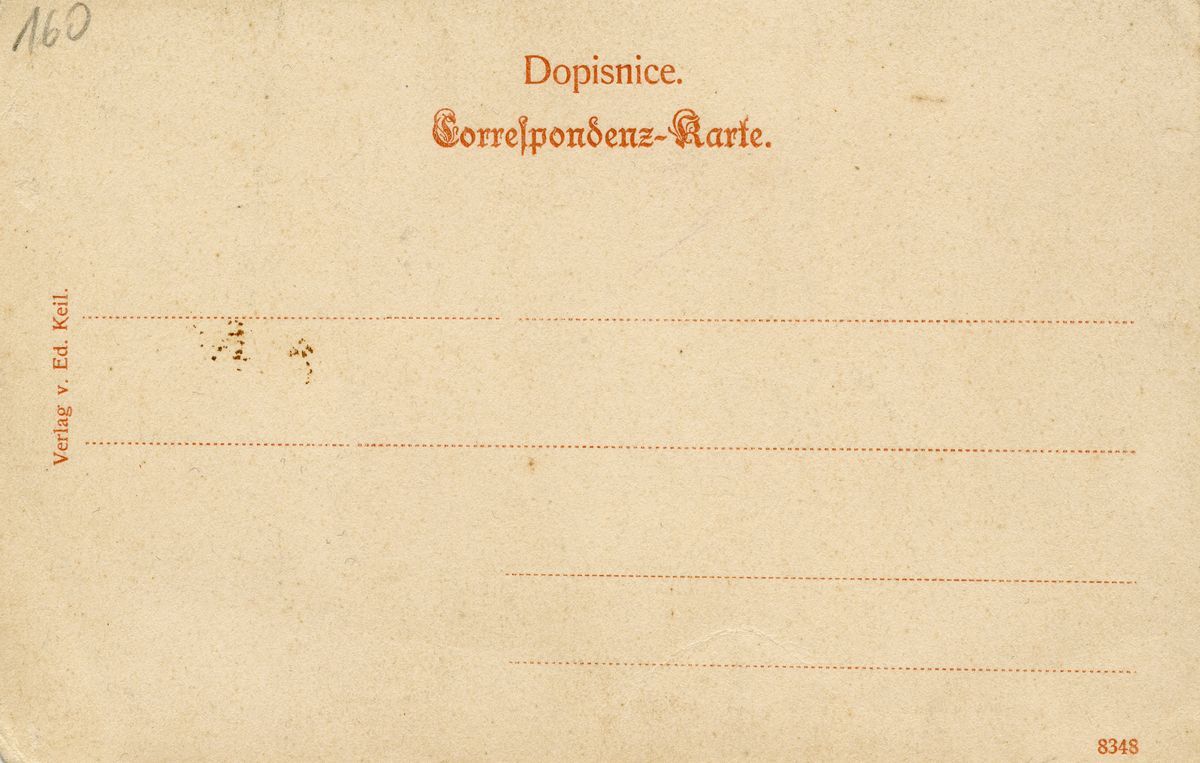 160
Dopisnice.
Correſpondenz-Karte.
Verlag v. Ed. Keil.
8348